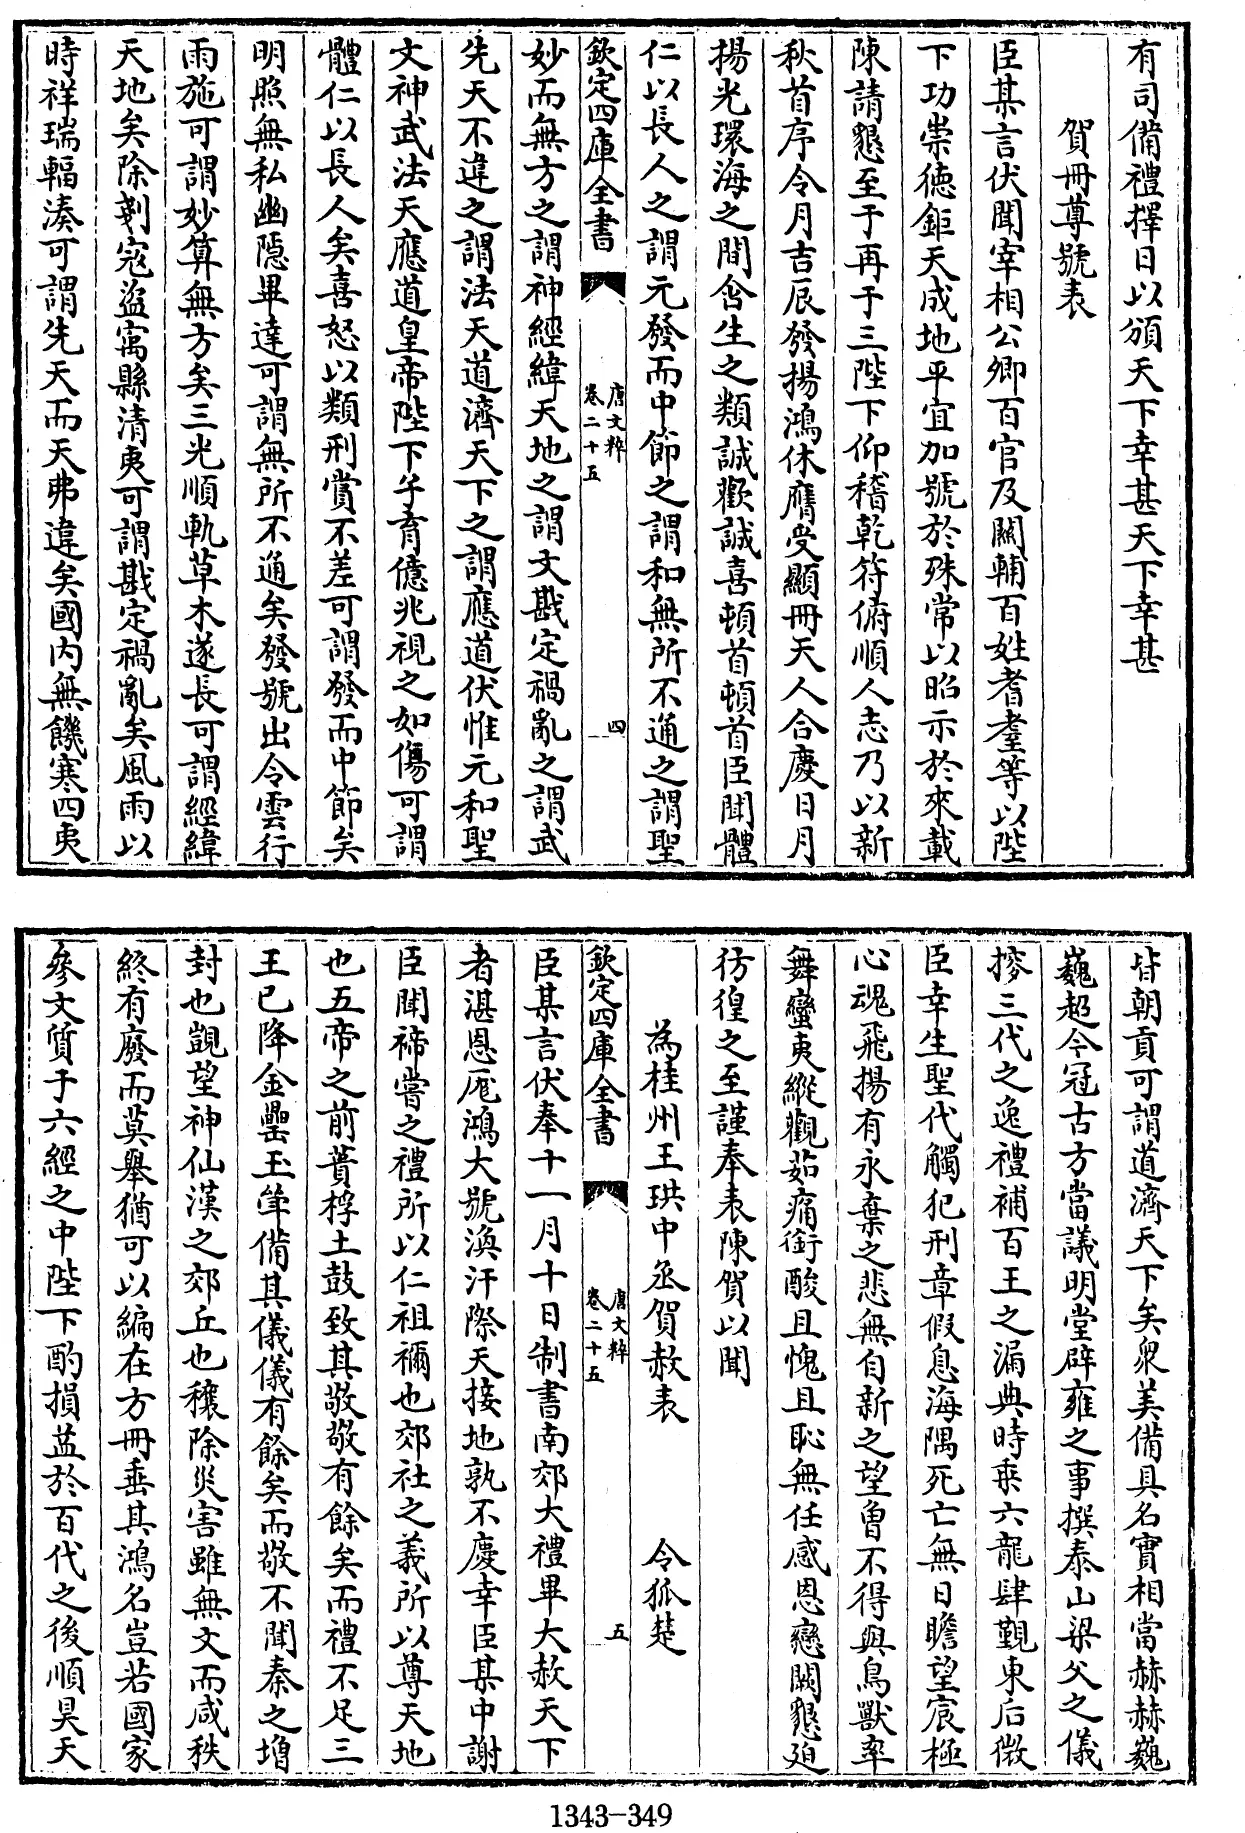 有司備禮擇日以頒天下幸甚天下幸甚
賀冊尊號表
臣某言伏聞宰相公卿百官及關輔百姓耆耋等以陛
下功崇德鉅天成地平宜加號於殊常以昭示於來載
陳請懇至于再于三陛下仰稽乾符俯順人志乃以新
秋首序令月吉辰發揚鴻休膺受顯冊天人合慶日月
揚光環海之間含生之類誠歡誠喜頓首頓首臣聞體
仁以長人之謂元發而中節之謂和無所不通之謂聖
欽定四庫全書
唐文粹
卷二十五
四
妙而無方之謂神經緯天地之謂文戡定禍亂之謂武
先天不違之謂法天道濟天下之謂應道伏惟元和聖
文神武法天應道皇帝陛下子育億兆視之如傷可謂
體仁以長人矣喜怒以類刑賞不差可謂發而中節矣
明照無私幽隱畢達可謂無所不通矣發號出令雲行
雨施可謂妙算無方矣三光順軌草木遂長可謂經緯
天地矣除剗寇盜寓縣清夷可謂戡定禍亂矣風雨以
時祥瑞輻湊可謂先天而天弗違矣國内無饑寒四夷
皆朝貢可謂道濟天下矣衆美備具名實相當赫赫巍
巍超今冠古方當議明堂辟雍之事撰泰山梁父之儀
搜三代之逸禮補百王之漏典時乘六龍肆覲東后微
臣幸生聖代觸犯刑章假息海隅死亡無日瞻望宸極
心魂飛揚有永棄之悲無自新之望曽不得與鳥獸率
舞蠻夷縱觀茹痛銜酸且愧且恥無任感恩戀闕懇迫
彷徨之至謹奉表陳賀以聞
為桂州王珙中丞賀赦表 令狐楚
欽定四庫全書
唐文粹
卷二十五
五
臣某言伏奉十一月十日制書南郊大禮畢大赦天下
者湛恩厖鴻大號渙汗際天接地孰不慶幸臣某中謝
臣聞禘嘗之禮所以仁祖禰也郊社之義所以尊天地
也五帝之前蕢桴土鼓致其敬敬有餘矣而禮不足三
王已降金罍玉斝備其儀儀有餘矣而敬不聞秦之増
封也覬望神仙漢之郊丘也穰除災害雖無文而咸秩
終有廢而莫舉猶可以編在方冊垂其鴻名豈若國家
參文質于六經之中陛下酌損益於百代之後順昊天
1343-349